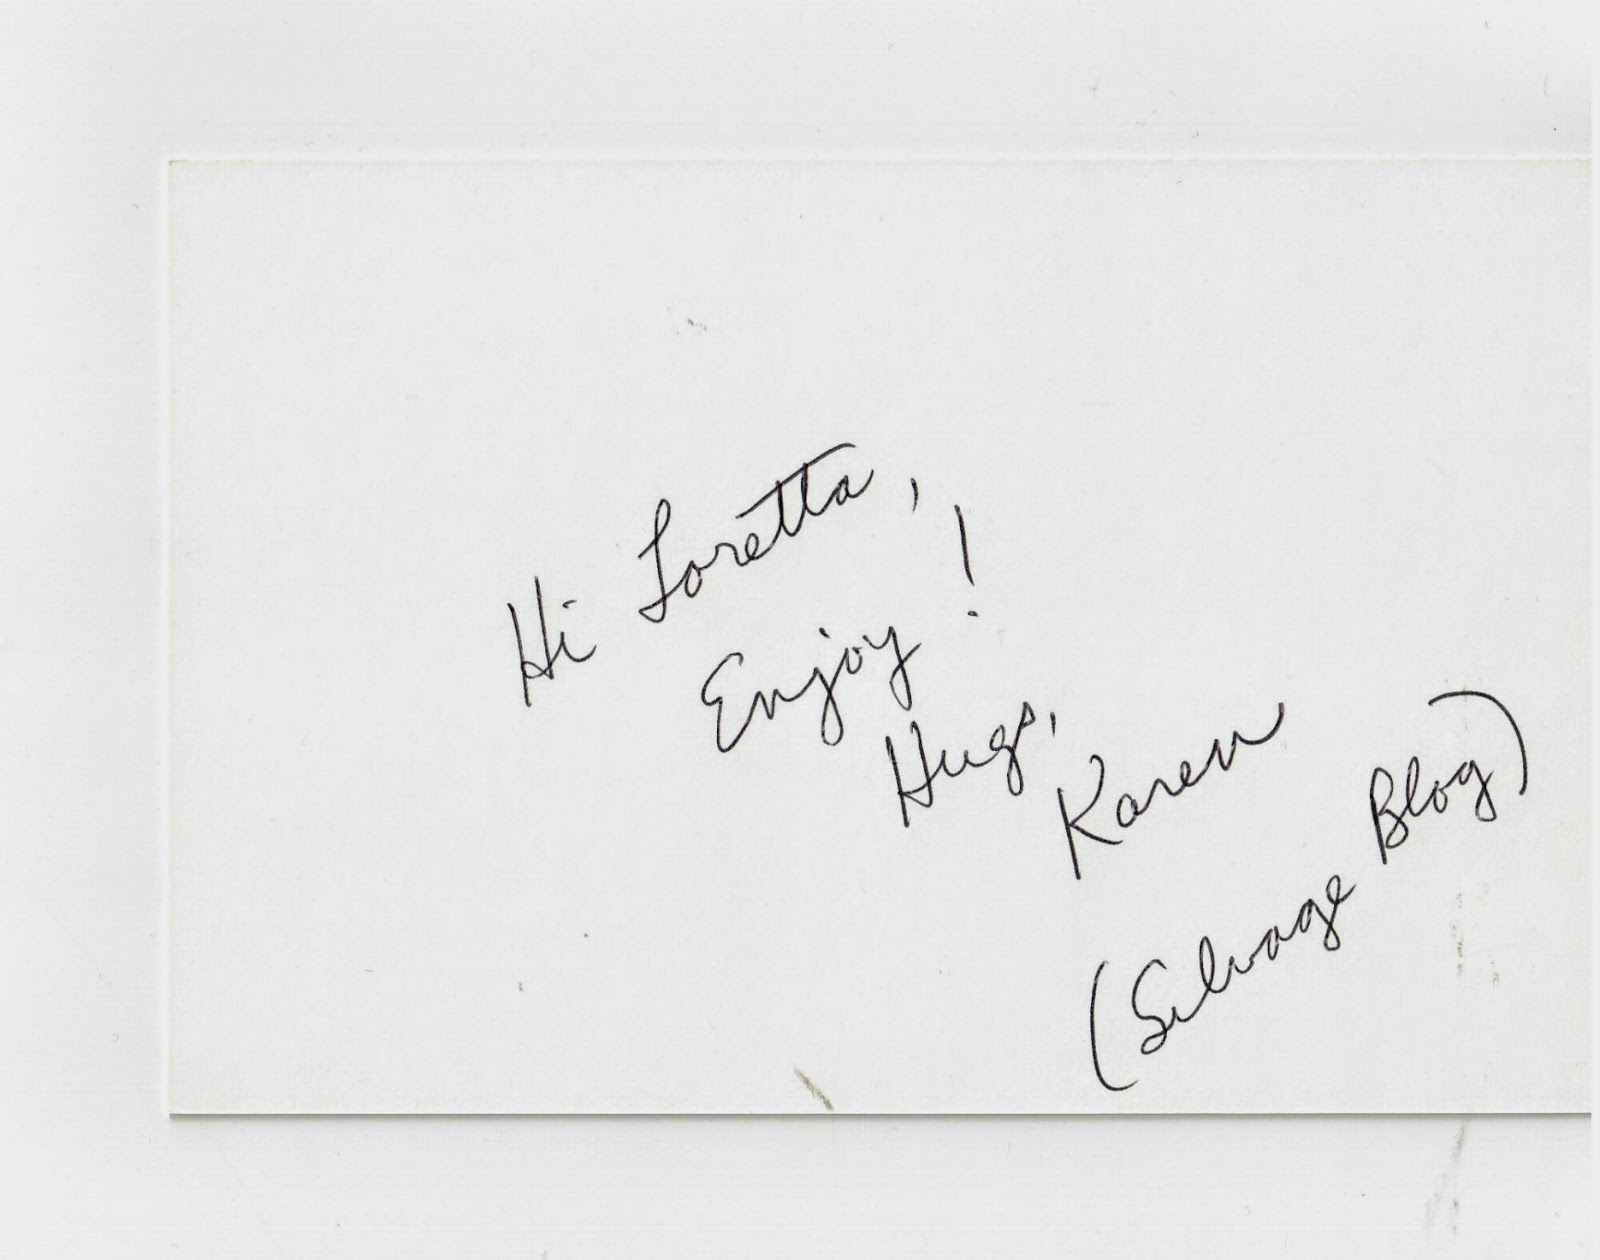 Hi Loretta,
Enjoy!
Hugs,
Karen
(Selvage Blog)